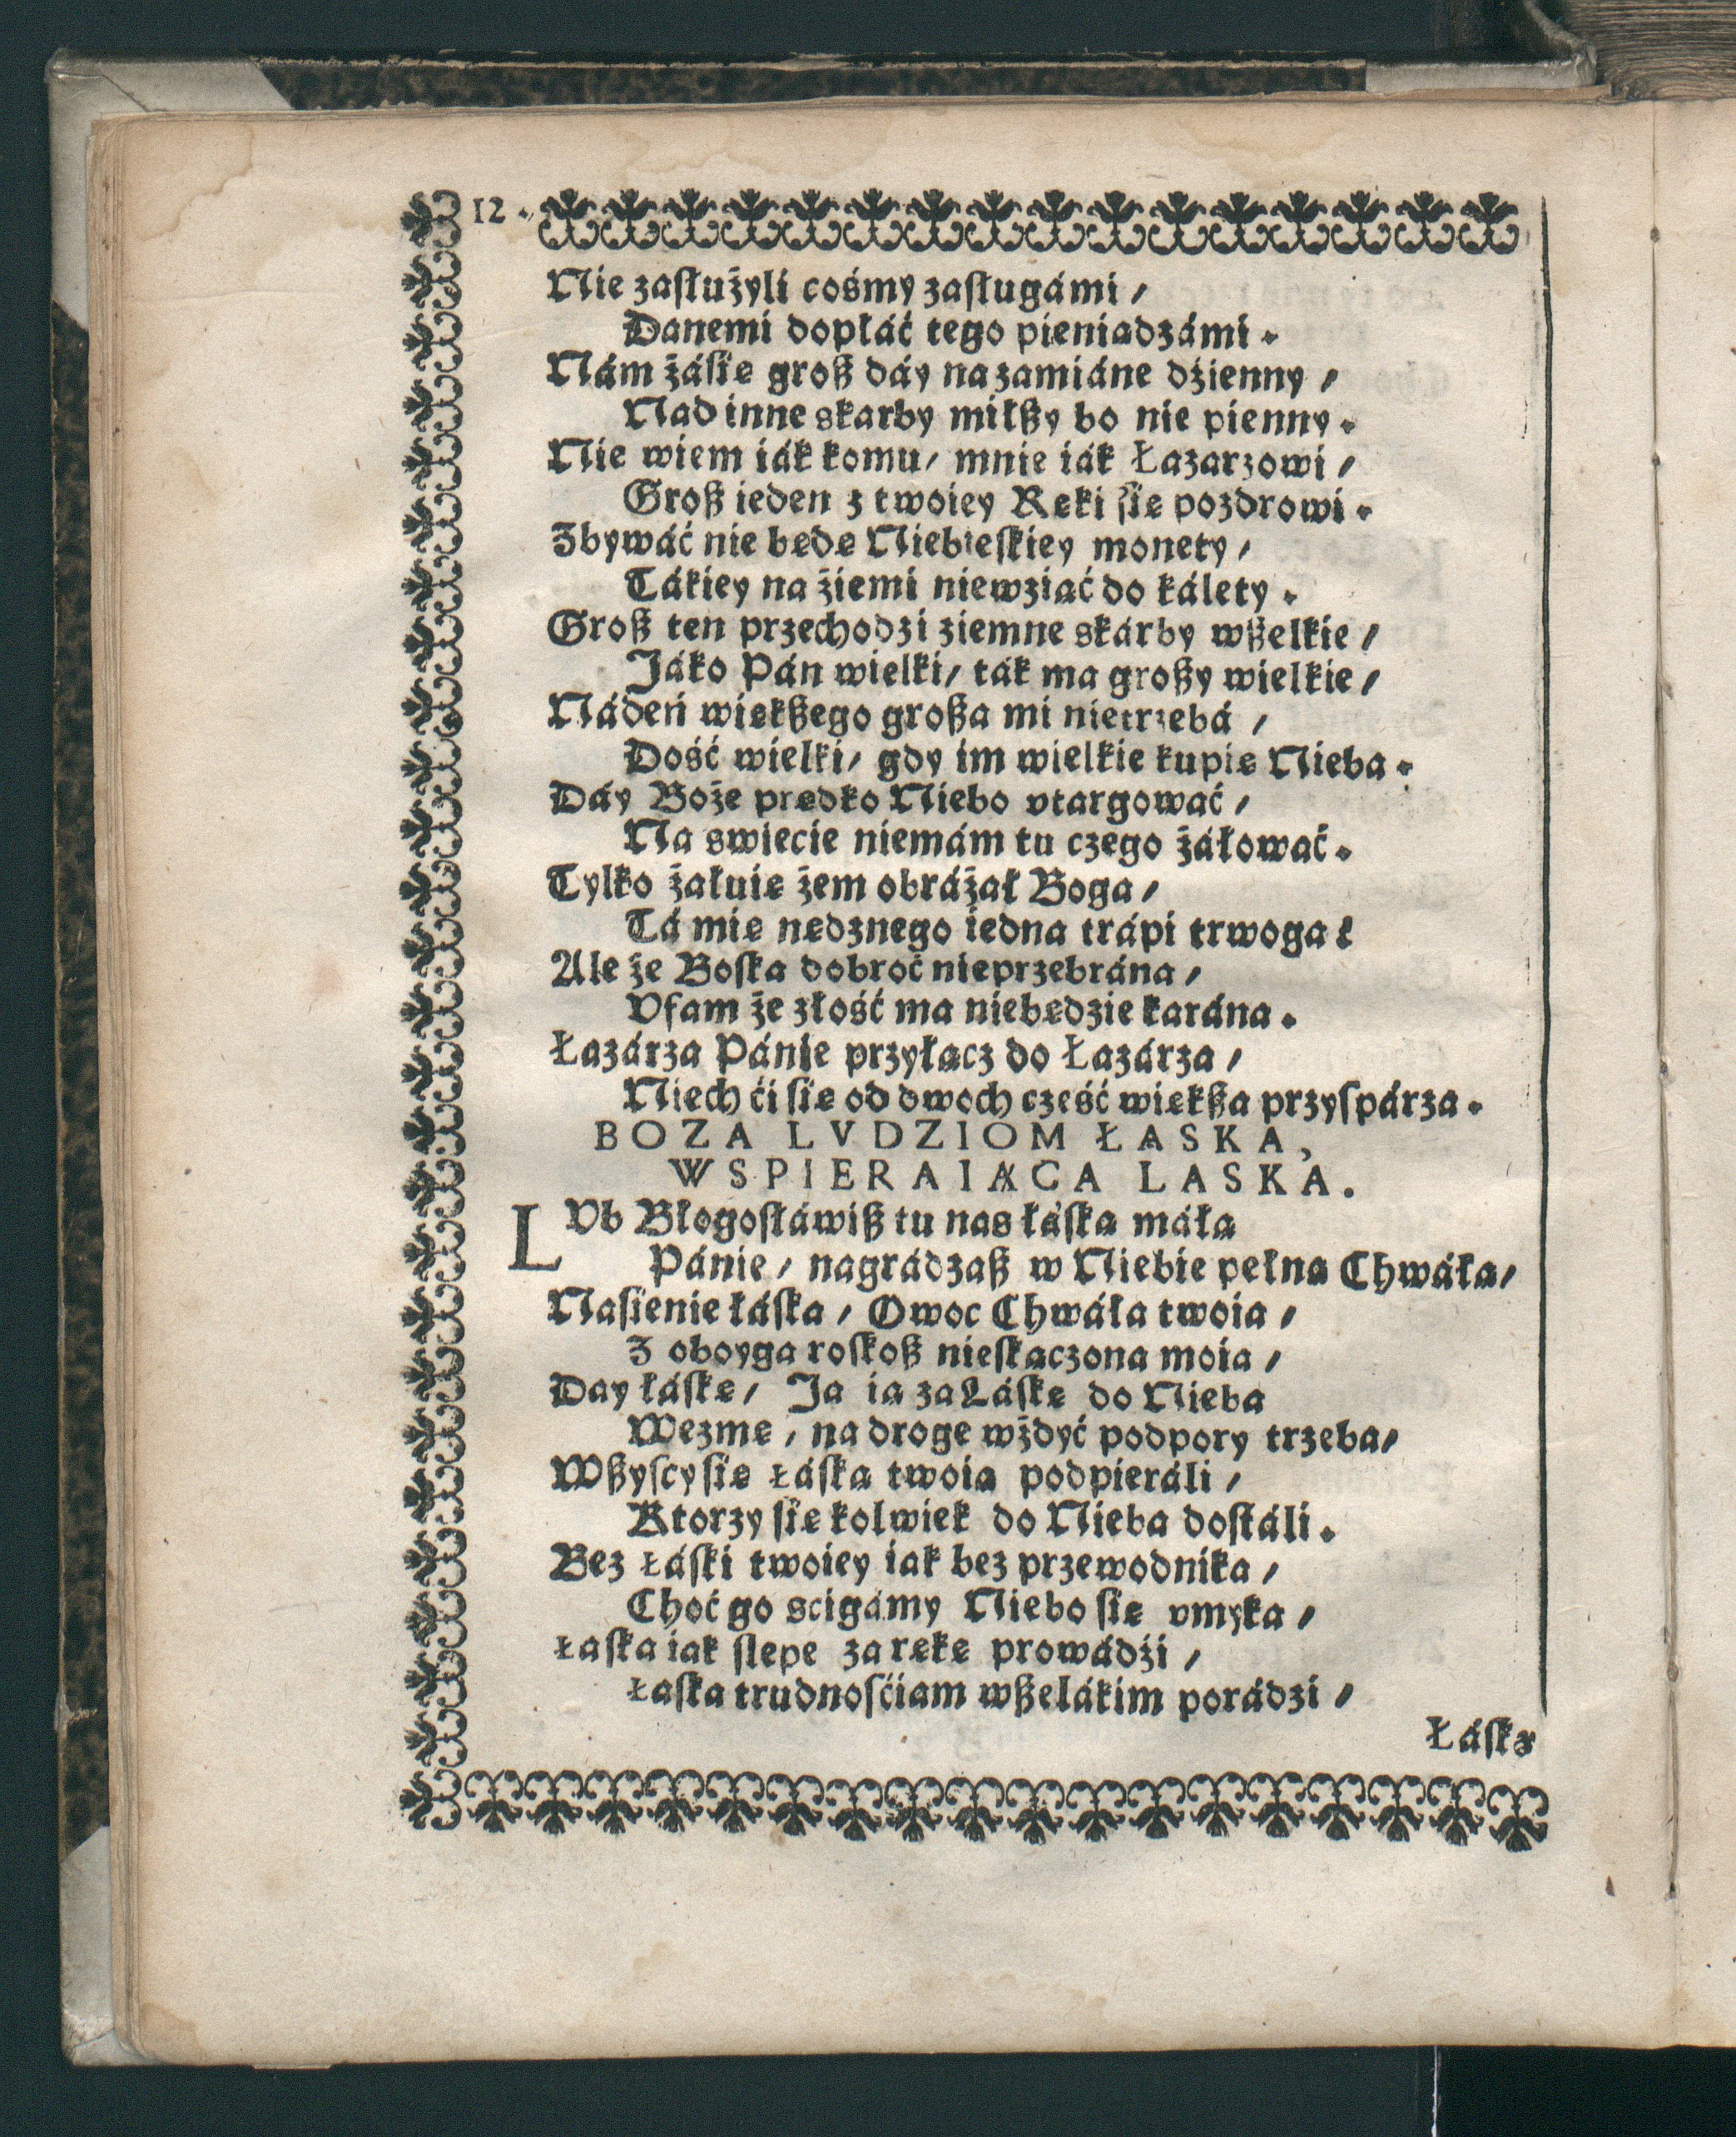 12.
Nie zasłużyli cośmy zasługámi /
Danemi dopłáć tego pieniądzámi.
Nám żásię groß dáy na zamiánę dźienny /
Nad inne skarby miłßy bo nie pienny.
Nie wiem iák komu / mnie iák Łazarzowi /
Groß ieden z twoiey Ręki się pozdrowi.
Zbywáć nie będę Niebieskiey monety /
Tákiey na żiemi niewziąć do kálety.
Groß ten przechodzi ziemne skárby wßelkie /
Jáko Pán wielki / ták ma großy wielkie /
Nádeń większego großa mi nietrzebá /
Dość wielki / gdy im wielkie kupię Nieba.
Dáy Boże prędko Niebo vtargowáć /
Na swiecie niemám tu czego żáłowáć.
Tylko żałuię żem obráżał Boga /
Tá mię nędznego iedna trápi trwoga:
Ale że Boska dobroć nieprzebrána /
Vfam że złość ma niebędzie karána.
Łazárza Pánie przyłącz do Łazárza /
Niech ći się od dwoch cześć większa przyspárza.
BOZA LVDZIOM ŁASKA,
WSPIERAIĄCA LASKA.
LVb Błogosłáwiß tu nas łáską máłą
Pánie / nagrádzaß w Niebie pełną Chwáłą /
Nasienie łáska / Owoc Chwáła twoia /
Z oboyga roskoß nieskączona moia /
Day łáskę / Ja ią za Láskę do Nieba
Wezmę / na drogę wżdyć podpory trzeba /
Wßyscy się łáską twoią podpieráli /
Ktorzy się kolwiek do Nieba dostáli.
Bez łáski twoiey iak bez przewodnika /
Choć go scigámy Niebo się vmyka /
Łaska iak slepe za rękę prowádźi /
Łaska trudnosćiam wßelákim porádzi /
Łáską